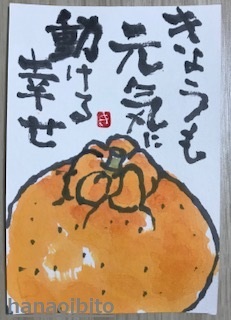 きょうも
元気に
動ける
幸せ
き
hanaoibito